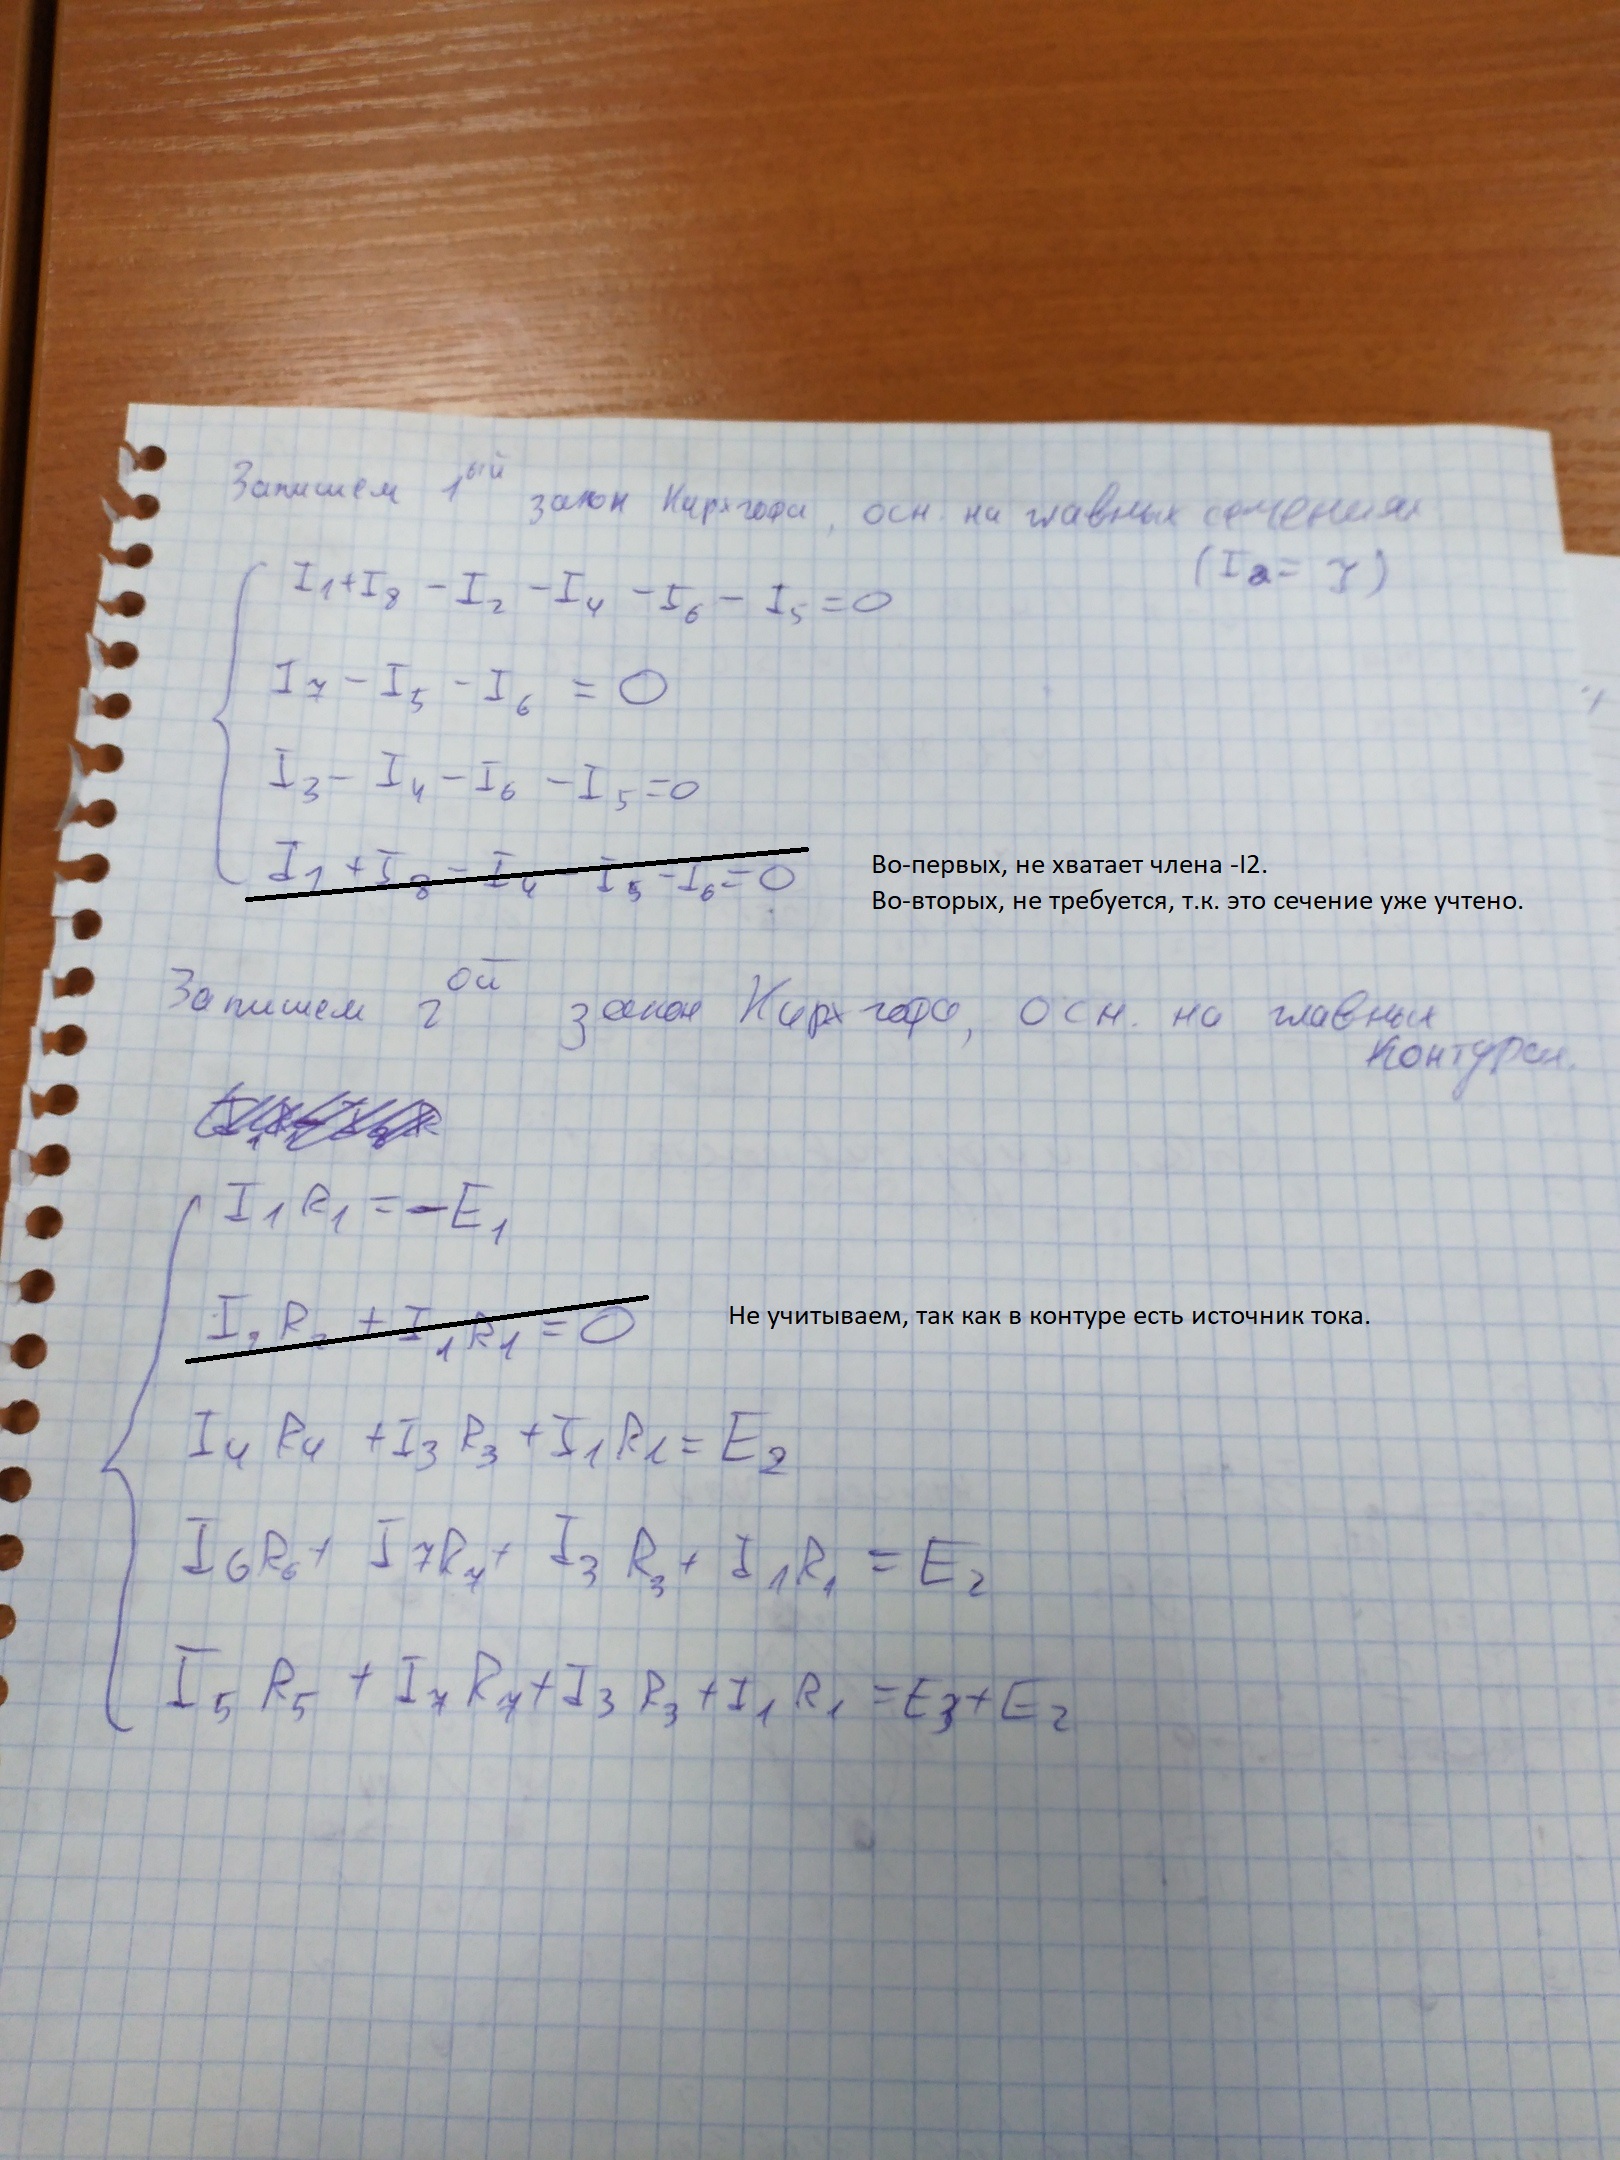 Запишем 1ый закон Кирхгофа, осн. на главных сечениях
(I2 = J)
I1+I8 -I2 -I4 -I6 - I5 =0
I7 -I5 -I6 = 0
I3 - I4 -I6 -I5=0
I1 +I8 -I4 -I5 -I6=0
Во-первых, не хватает члена -I2.
Во-вторых, не требуется, т.к. это сечение уже учтено.
Запишем 2ой закон Кирхгофа, осн. на главных
контурах.
I1 R1 = -E1
I2 R2 + I1R1 = 0
Не учитываем, так как в контуре есть источник тока.
I4 R4 +I3 R3 +I1R1= E2
I6R6+ I7R7+ I3 R3+ I1R1 = E2
I5 R5 + I7 R7+I3 R3+I1 R1 =E3+E2